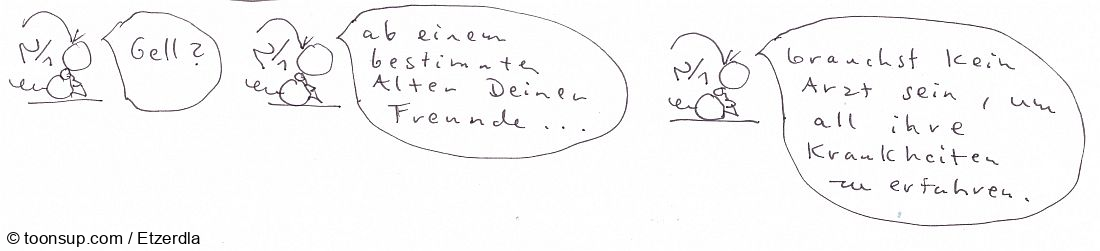 Gell?
ab einem
bestimmten
Alter Deiner
Freunde...
brauchst kein
Arzt sein, um
all ihre
Krankheiten
zu erfahren.
© toonsup.com / Etzerdla